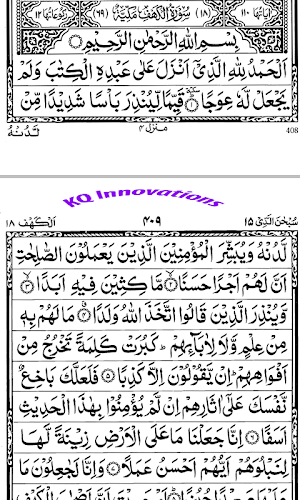 اٰيَاتُهَا ١١٠ (١٨) سُوْرَةُ الْكَهْفِ مَكِّيَّةٌ (٦٩) رُكُوْعَاتُهَا ١٢
بِسْمِ اللهِ الرَّحْمٰنِ الرَّحِيْمِ
اَلْحَمْدُ لِلّٰهِ الَّذِىْٓ اَنْزَلَ عَلٰى عَبْدِهِ الْكِتٰبَ وَلَمْ
يَجْعَلْ لَّهٗ عِوَجًا ﴿١﴾ قَيِّمًا لِّيُنْذِرَ بَاْسًا شَدِيْدًا مِّنْ
لَّدُنْهُ منزل ٤ 408
KQ Innovations
سُبْحٰنَ الَّذِىْٓ ١٥ ٤٠٩ اَلْكَهْف ١٨
لَّدُنْهُ وَيُبَشِّرَ الْمُؤْمِنِيْنَ الَّذِيْنَ يَعْمَلُوْنَ الصّٰلِحٰتِ
اَنَّ لَهُمْ اَجْرًا حَسَنًا ﴿٢﴾ مَّاكِثِيْنَ فِيْهِ اَبَدًا ﴿٣﴾
وَّيُنْذِرَ الَّذِيْنَ قَالُوا اتَّخَذَ اللهُ وَلَدًا ﴿٤﴾ مَا لَهُمْ بِهٖ
مِنْ عِلْمٍ وَّلَا لِاٰبَآئِهِمْ ؕ كَبُرَتْ كَلِمَةً تَخْرُجُ مِنْ
اَفْوَاهِهِمْ ؕ اِنْ يَّقُوْلُوْنَ اِلَّا كَذِبًا ﴿٥﴾ فَلَعَلَّكَ بَاخِعٌ
نَّفْسَكَ عَلٰٓى اٰثَارِهِمْ اِنْ لَّمْ يُؤْمِنُوْا بِهٰذَا الْحَدِيْثِ
اَسَفًا ﴿٦﴾ اِنَّا جَعَلْنَا مَا عَلَى الْاَرْضِ زِيْنَةً لَّهَا
لِنَبْلُوَهُمْ اَيُّهُمْ اَحْسَنُ عَمَلًا ﴿٧﴾ وَاِنَّا لَجٰعِلُوْنَ مَا